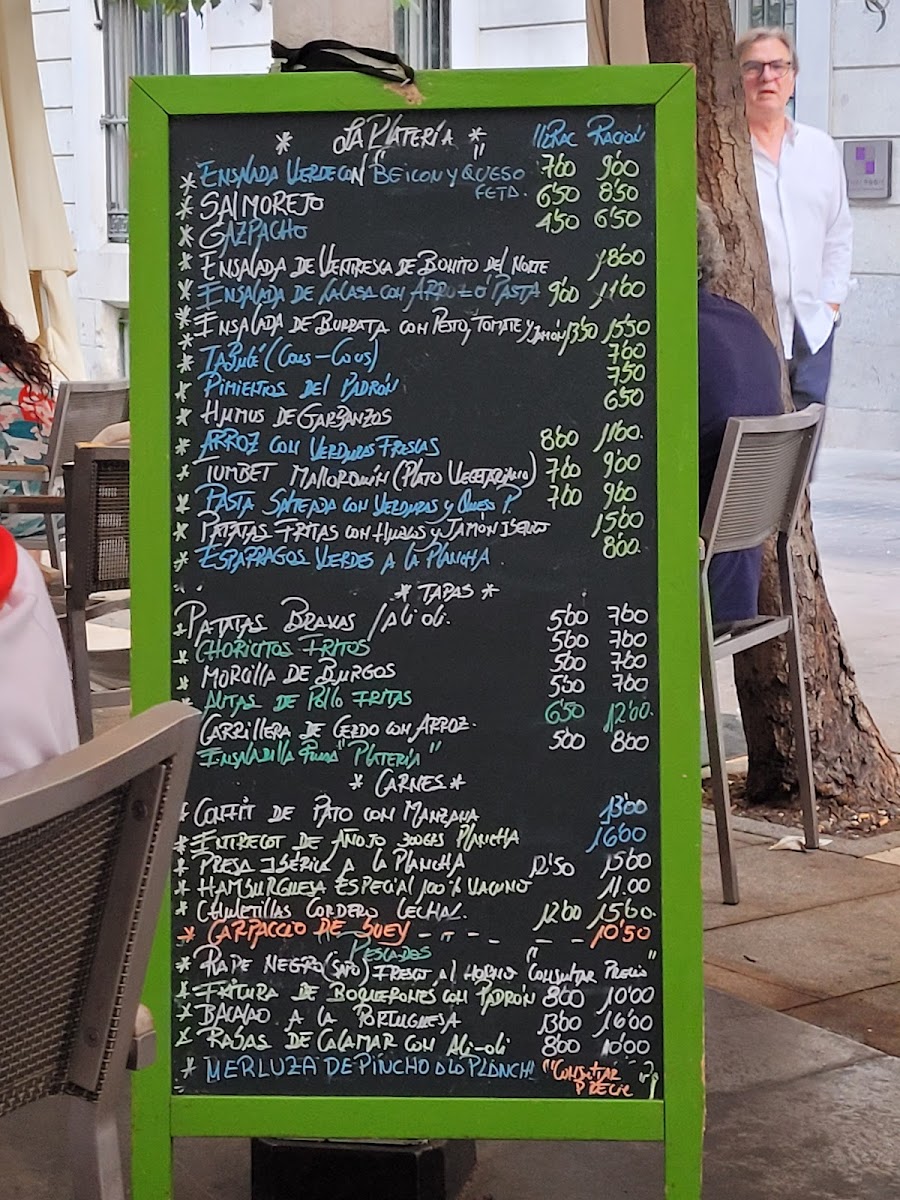 * La Platería * 1/2 Rac Ración
* Ensalada Verde con "Beicon y Queso" 7'00 9'00
Feta.
* Salmorejo 6'50 8'50
* Gazpacho 4'50 6'50
* Ensalada de Ventresca de Bonito del Norte 18'00
* Ensalada de la Casa con Arroz o Pasta 9'00 11'00
* Ensalada de Burrata con Pesto, Tomate y Jamón 13'50 15'50
* Tabulé (Cous-Cous) 7'00
* Pimientos del Padrón 7'50
* Humus de Garbanzos 6'50
* Arroz con Verduras Frescas 8'00 11'00.
* Tumbet Mallorquín (Plato Vegetariano) 7'00 9'00
* Pasta Salteada con Verduras y Queso P. 7'00 9'00
* Patatas Fritas con Huevos y Jamón Ibérico 15'00
* Espárragos Verdes a la Plancha 8'00.
* Tapas *
* Patatas Bravas / ali oli. 5'00 7'00
* Choricitos Fritos 5'00 7'00
* Morcilla de Burgos 5'00 7'00
* Alitas de Pollo Fritas 5'00 7'00
* Carrillera de Cerdo con Arroz. 6'50 12'00.
Ensaladilla Rusa "Platería" 5'00 8'00
* Carnes *
* Confit de Pato con Manzana 13'00
* Entrecot de Añojo 300grs Plancha 16'00
* Presa Ibérica a la Plancha 12'50 15'00
* Hamburguesa Especial 100% Vacuno 11.00
* Chuletillas Cordero Lechal. 12'00 15'00.
* Carpaccio de Buey 10'50
Pescados
* Rape Negro (Sapo) Fresco al Horno "Consultar Precio"
* Fritura de Boquerones con Padrón 8'00 10'00
* Bacalao a la Portuguesa 13'00 16'00
* Rabas de Calamar con Ali-oli 8'00 10'00
* Merluza de Pincho a la Planch "Consultar
Precio"